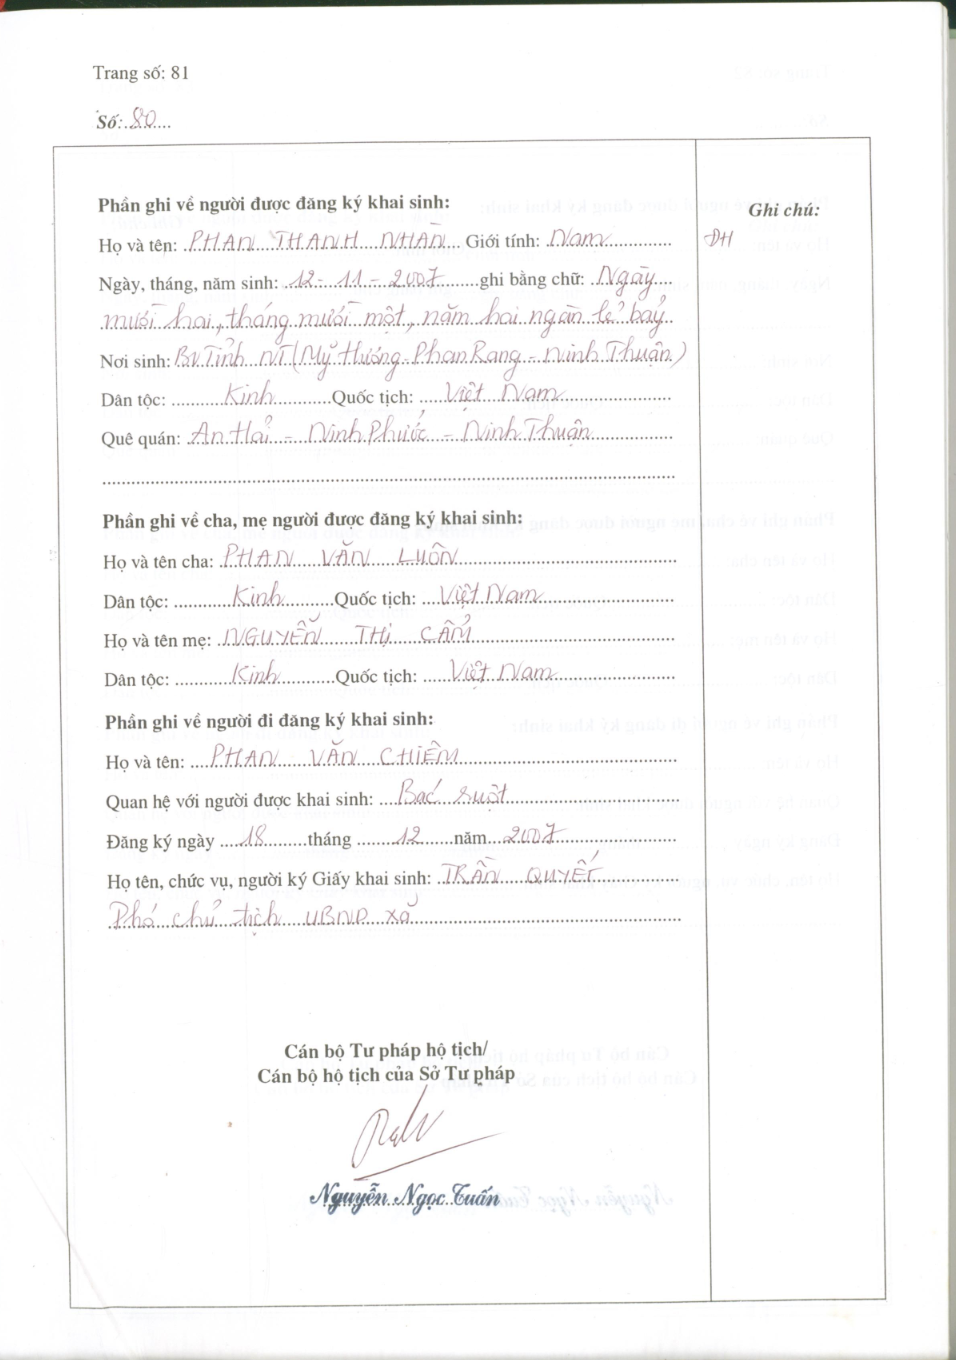 Trang số: 81
Số: 80
Phần ghi về người được đăng ký khai sinh:
Ghi chú:
Họ và tên: PHAN THANH NHÀN Giới tính: Nam
ĐH
Ngày, tháng, năm sinh: 12-11-2007 ghi bằng chữ: Ngày
mười hai, tháng mười một, năm hai ngàn lẻ bảy
Nơi sinh: BV Tỉnh NT (Mỹ Hương - Phan Rang - Ninh Thuận)
Dân tộc: Kinh Quốc tịch: Việt Nam
Quê quán: An Hải - Ninh Phước - Ninh Thuận
Phần ghi về cha, mẹ người được đăng ký khai sinh:
Họ và tên cha: PHAN VĂN LUÔN
Dân tộc: Kinh Quốc tịch: Việt Nam
Họ và tên mẹ: NGUYỄN THỊ CẨM
Dân tộc: Kinh Quốc tịch: Việt Nam
Phần ghi về người đi đăng ký khai sinh:
Họ và tên: PHAN VĂN CHIÊM
Quan hệ với người được khai sinh: Bác ruột
Đăng ký ngày 18 tháng 12 năm 2007
Họ tên, chức vụ, người ký Giấy khai sinh: TRẦN QUYẾT
Phó chủ tịch UBND xã
Cán bộ Tư pháp hộ tịch/
Cán bộ hộ tịch của Sở Tư pháp
Nguyễn Ngọc Tuấn